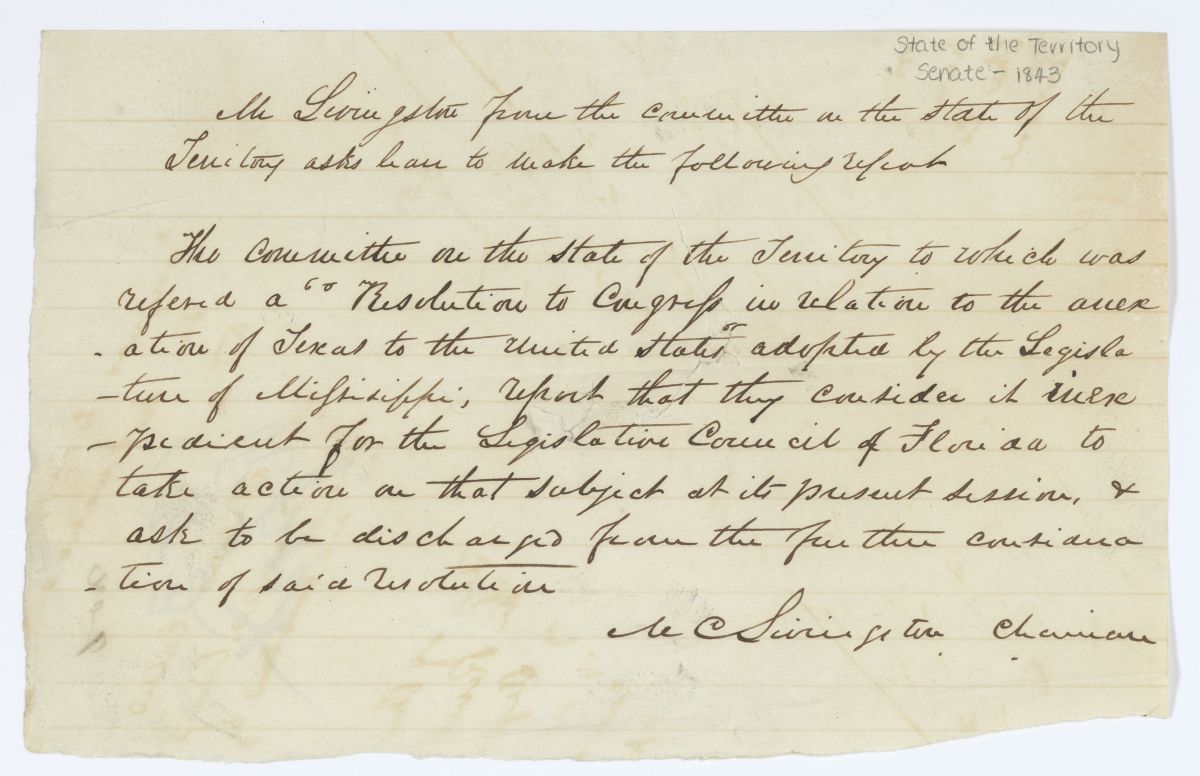 State of the Territory
Senate - 1843
Mr Livingston from the committee on the state of the
Territory asks leave to make the following report
The committee on the state of the Territory to which was
refered a "Resolution to Congress in relation to the anex
-ation of Texas to the United States" adopted by the Legisla
-ture of Missisippi, report that they consider it inex
-pedient for the Legislative Council of Florida to
take action on that subject at its present session, &
ask to be discharged from the further considera
-tion of said resolution
M C Livingston Chairman